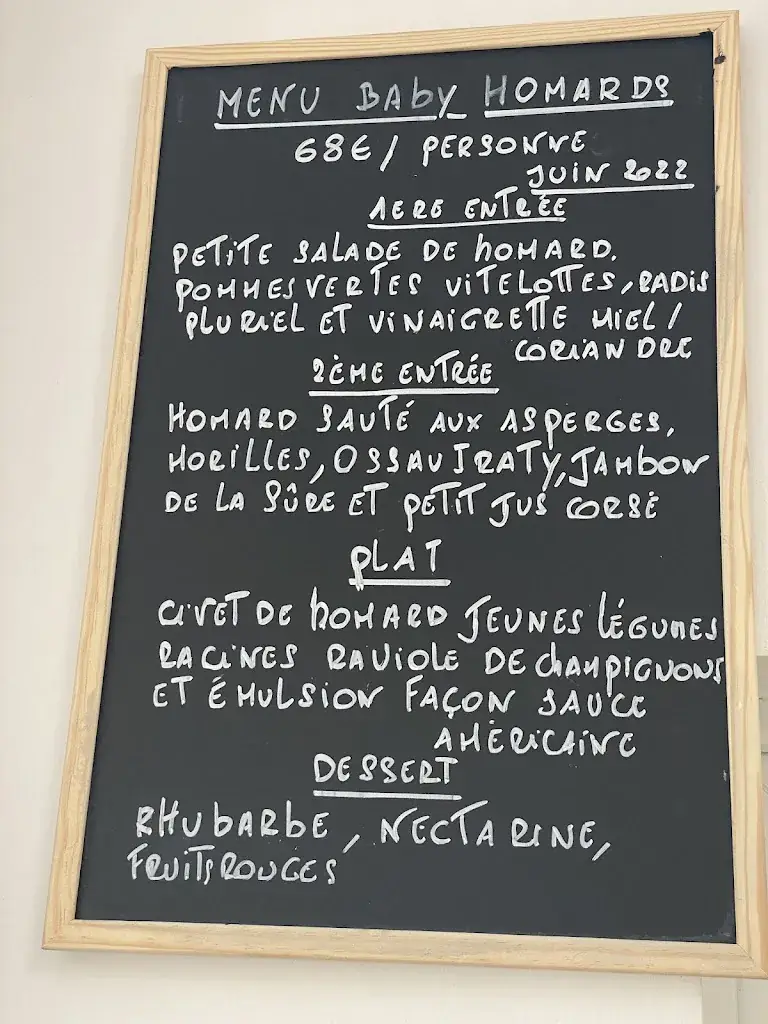 MENU BABY HOMARDS
68€/ PERSONNE
JUIN 2022
1ERE ENTRÉE
PETITE SALADE DE HOMARD.
POMMES VERTES VITELOTTES, RADIS
PLURIEL ET VINAIGRETTE MIEL /
CORIANDRE
2ÈME ENTRÉE
HOMARD SAUTÉ AUX ASPERGES,
MORILLES, OSSAU IRATY, JAMBON
DE LA SÛRE ET PETIT JUS CORSÉ
PLAT
CIVET DE HOMARD JEUNES LÉGUMES
RACINES RAVIOLE DE CHAMPIGNONS
ET ÉMULSION FAÇON SAUCE
AMÉRICAINE
DESSERT
RHUBARBE, NECTARINE,
FRUITS ROUGES